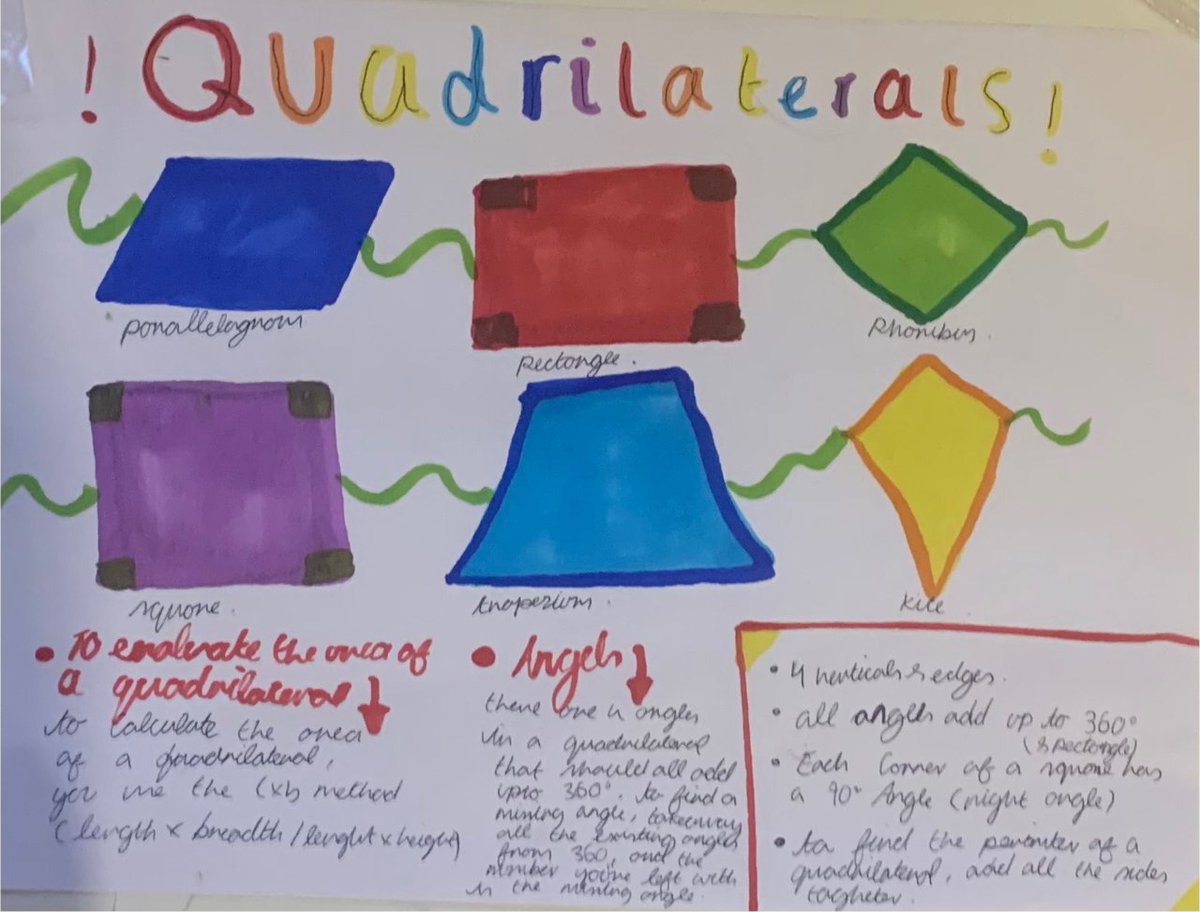 ! QUadrilaterals !
parallelogram
Rectangle.
Rhombus.
square.
trapezium.
Kite
• To evaluate the area of
a quadrilateral ↓
to calculate the area
of a quadrilateral,
you use the lxb method
(length x breadth / lenght x height)
• Angels ↓
there are 4 angles
in a quadrilateral
that should all add
upto 360°. to find a
missing angle, takeaway
all the existing angles
from 360, and the
number you're left with
is the missing angle.
• 4 verticals & edges.
• all angles add up to 360°
(& rectangle)
• Each Corner of a square has
a 90° Angle (right angle)
• to find the perimiter of a
quadrilateral, add all the sides
togheter.